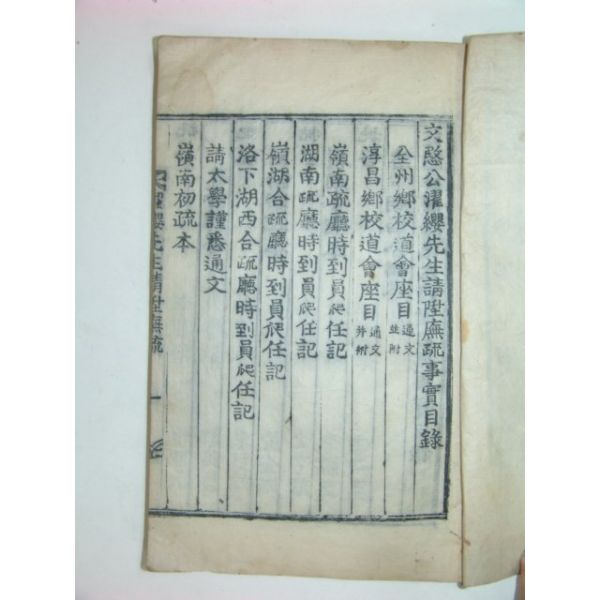 文愍公濯纓先生請陞廡疏事實目錄
全州鄕校道會座目通文並附
淳昌鄕校道會座目通文并附
嶺南疏廳時到員爬任記
湖南疏廳時到員爬任記
嶺湖合疏廳時到員爬任記
洛下湖西合疏廳時到員爬任記
請太學謹悉通文
嶺南初疏本
濯纓先生請陞廡疏
一